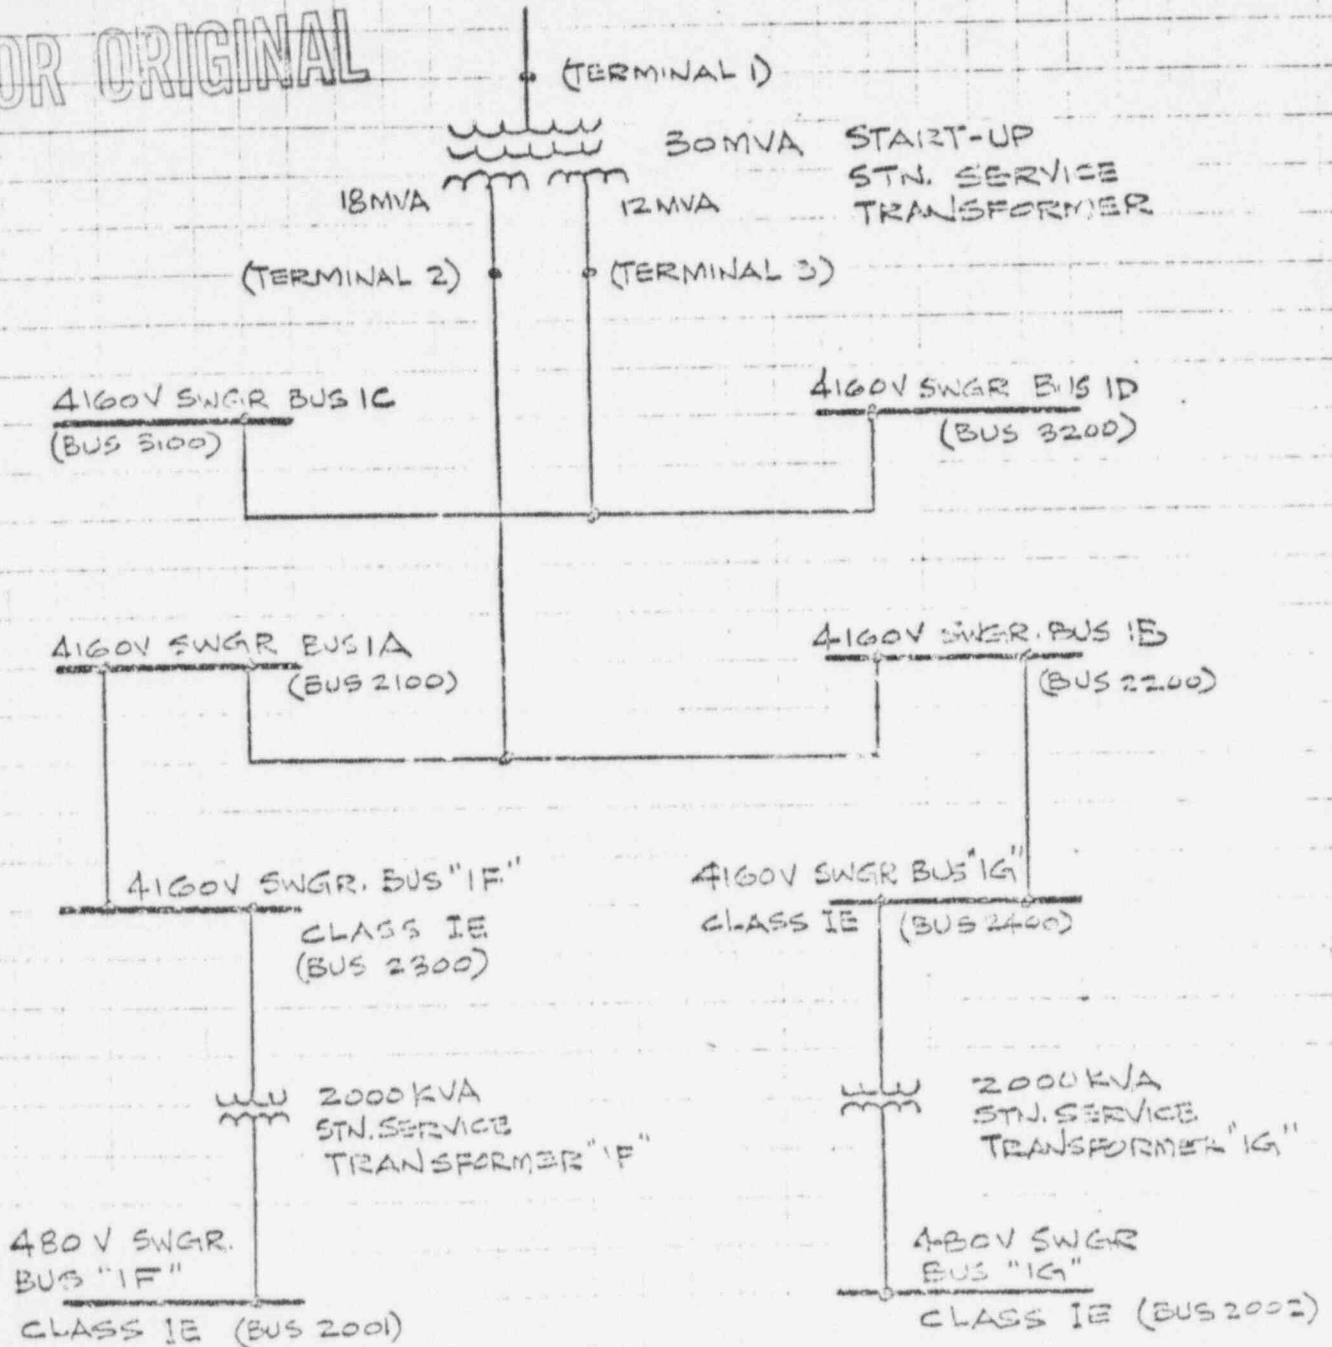 OR ORIGINAL
(TERMINAL 1)
30MVA START-UP
STN. SERVICE
TRANSFORMER
18MVA
12MVA
(TERMINAL 2)
(TERMINAL 3)
4160V SWGR BUS 1C
(BUS 3100)
4160V SWGR BUS 1D
(BUS 3200)
4160V SWGR BUS 1A
(BUS 2100)
4160V SWGR. BUS 1B
(BUS 2200)
4160V SWGR. BUS "1F"
CLASS IE
(BUS 2300)
4160V SWGR BUS "1G"
CLASS IE (BUS 2400)
2000 KVA
STN. SERVICE
TRANSFORMER "1F"
2000 KVA
STN. SERVICE
TRANSFORMER "1G"
480 V SWGR.
BUS "1F"
CLASS IE (BUS 2001)
480V SWGR
BUS "1G"
CLASS IE (BUS 2002)